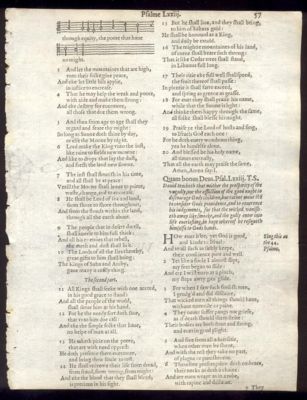 Psalme Lxxij. 57
through equity, the poore that haue
no might.
3 And let the mountaines that are high,
vnto their folke giue peace,
And eke let little hils apply,
in iustice to encrease.
4 That he may help the weak and poore,
with aide and make them strong:
And eke destroy for euermore,
all those that doe them wrong.
5 And then from age to age shall they
regard and feare thy might:
So long as Sunne doth shine by day,
or els the Moone by night.
6 Lord make the King vnto the iust,
like raine to fields new mowne:
And like to drops that lay the dust,
and fresh the land new sowne.
7 The iust shall flourish in his time,
and all shall be at peace:
Vntill the Moone shall leaue to
waste, change, and to encrease.
8 He shall be Lord of sea and land,
from shore to shore throughout:
And from the flouds within the land,
through all the earth about.
9 The people that in desert dwell,
shall kneele to him full thicke:
And all his enemies that rebell,
the earth and dust shall
10 The Lords of all the Iles thereby,
great gifts to him shall bring:
The Kings of Saba and Araby,
giue many a costly thing.
The second part.
11 All Kings shall seeke with one accord,
in his good grace to stand:
And all the people of the world,
shall serue him at his hand.
12 For he the needy sort doth saue,
that vnto him doe call:
And eke the simple folke that haue,
no helpe of man at all.
13 He taketh pitie on the poore,
that are with need opprest:
He doth preserue them euermore,
and bring their soules to rest.
14 He shall redeeme their life from dread,
from fraud, from wrong, from might:
And eke the bloud that they shall bleed,
is precious in his sight.
15 But he shall liue, and they shall bring,
to him of Sabaes gold:
He shall be honoured as a King,
and daily be extold.
16 The mighty mountaines of his land,
of corne shall beare such throng:
That it like Cedar trees shall stand,
in Libanus full long.
17 Their cities eke full well shall speed,
the fruit thereof shall passe:
In plentie it shall farre exceed,
and spring as greene as grasse.
18 For euer they shall praise his name,
while that the Sunne is light:
And thinke them happy through the same,
all folke shall blesse his might.
19 Praise ye the Lord of hosts and sing,
to Israels God each one:
For he doth euery wondrous thing,
yea he himselfe alone.
20 And blessed be his holy name,
all times eternally,
That all the earth may praise the same,
Amen, Amen say I.
Quàm bonus Deus. Psal. Lxxiij. T.S.
How euer it be, yet God is good,
and kind to Israel:
And to all such as safely keepe,
their conscience pure and well.
2 Yet like a foole I almost slipt,
my feet began to slide:
And ere I wist euen at a pinch,
my steps awry gan glide.
Sing this as
the 44.
Psalme.
3 For when I saw such foolish men,
I grudg'd and did disdaine:
That wicked men all things should haue,
without turmoile or paine.
4 They neuer suffer pangs nor griefe,
as if death should them smite:
Their bodies are both stout and strong,
and euer in good plight.
5 And free from all aduersity,
when other men be shent,
And with the rest they take no part,
of plague or punishment.
6 Therefore presumption doth embrace,
their necks as doth a chaine:
And are euen wrapt as in a robe,
with rapine and disdaine.
7 They